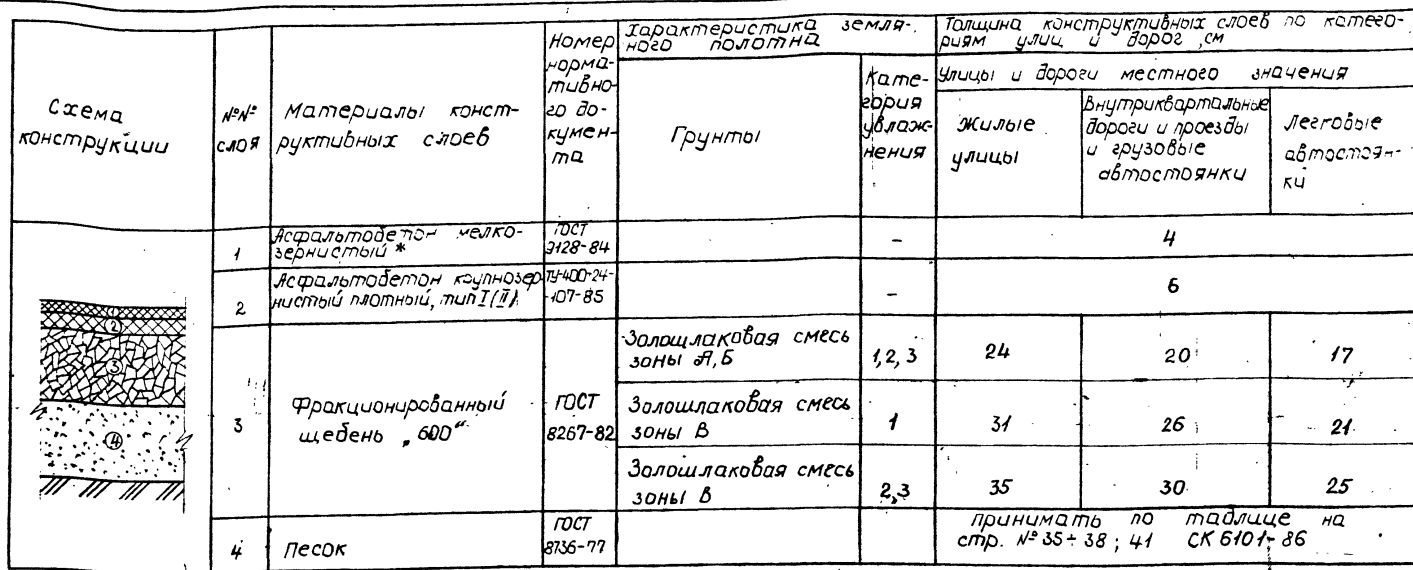 Схема
конструкции
№№
слоя
Материалы конст-
руктивных слоев
Номер
норма-
тивно-
го до-
кумен-
та
Характеристика земля-
ного полотна
Грунты
Кате-
гория
увлаж-
нения
Толщина конструктивных слоев по катего-
риям улиц и дорог, см
Улицы и дороги местного значения
Жилые
улицы
Внутриквартальные
дороги и проезды
и грузовые
автостоянки
Легковые
автостоян-
ки
1
Асфальтобетон мелко-
зернистый *
ГОСТ
9128-84
-
4
2
Асфальтобетон крупнозер-
нистый плотный, тип I(II)
ТУ-400-24-
-107-85
-
6
3
Фракционированный
щебень „600“
ГОСТ
8267-82
Золошлаковая смесь
зоны А,Б
1,2,3
24
20
17
Золошлаковая смесь
зоны В
1
31
26
21
Золошлаковая смесь
зоны В
2,3
35
30
25
4
Песок
ГОСТ
8736-77
принимать по таблице на
стр. № 35÷38; 41 СК 6101-86
1
2
3
4